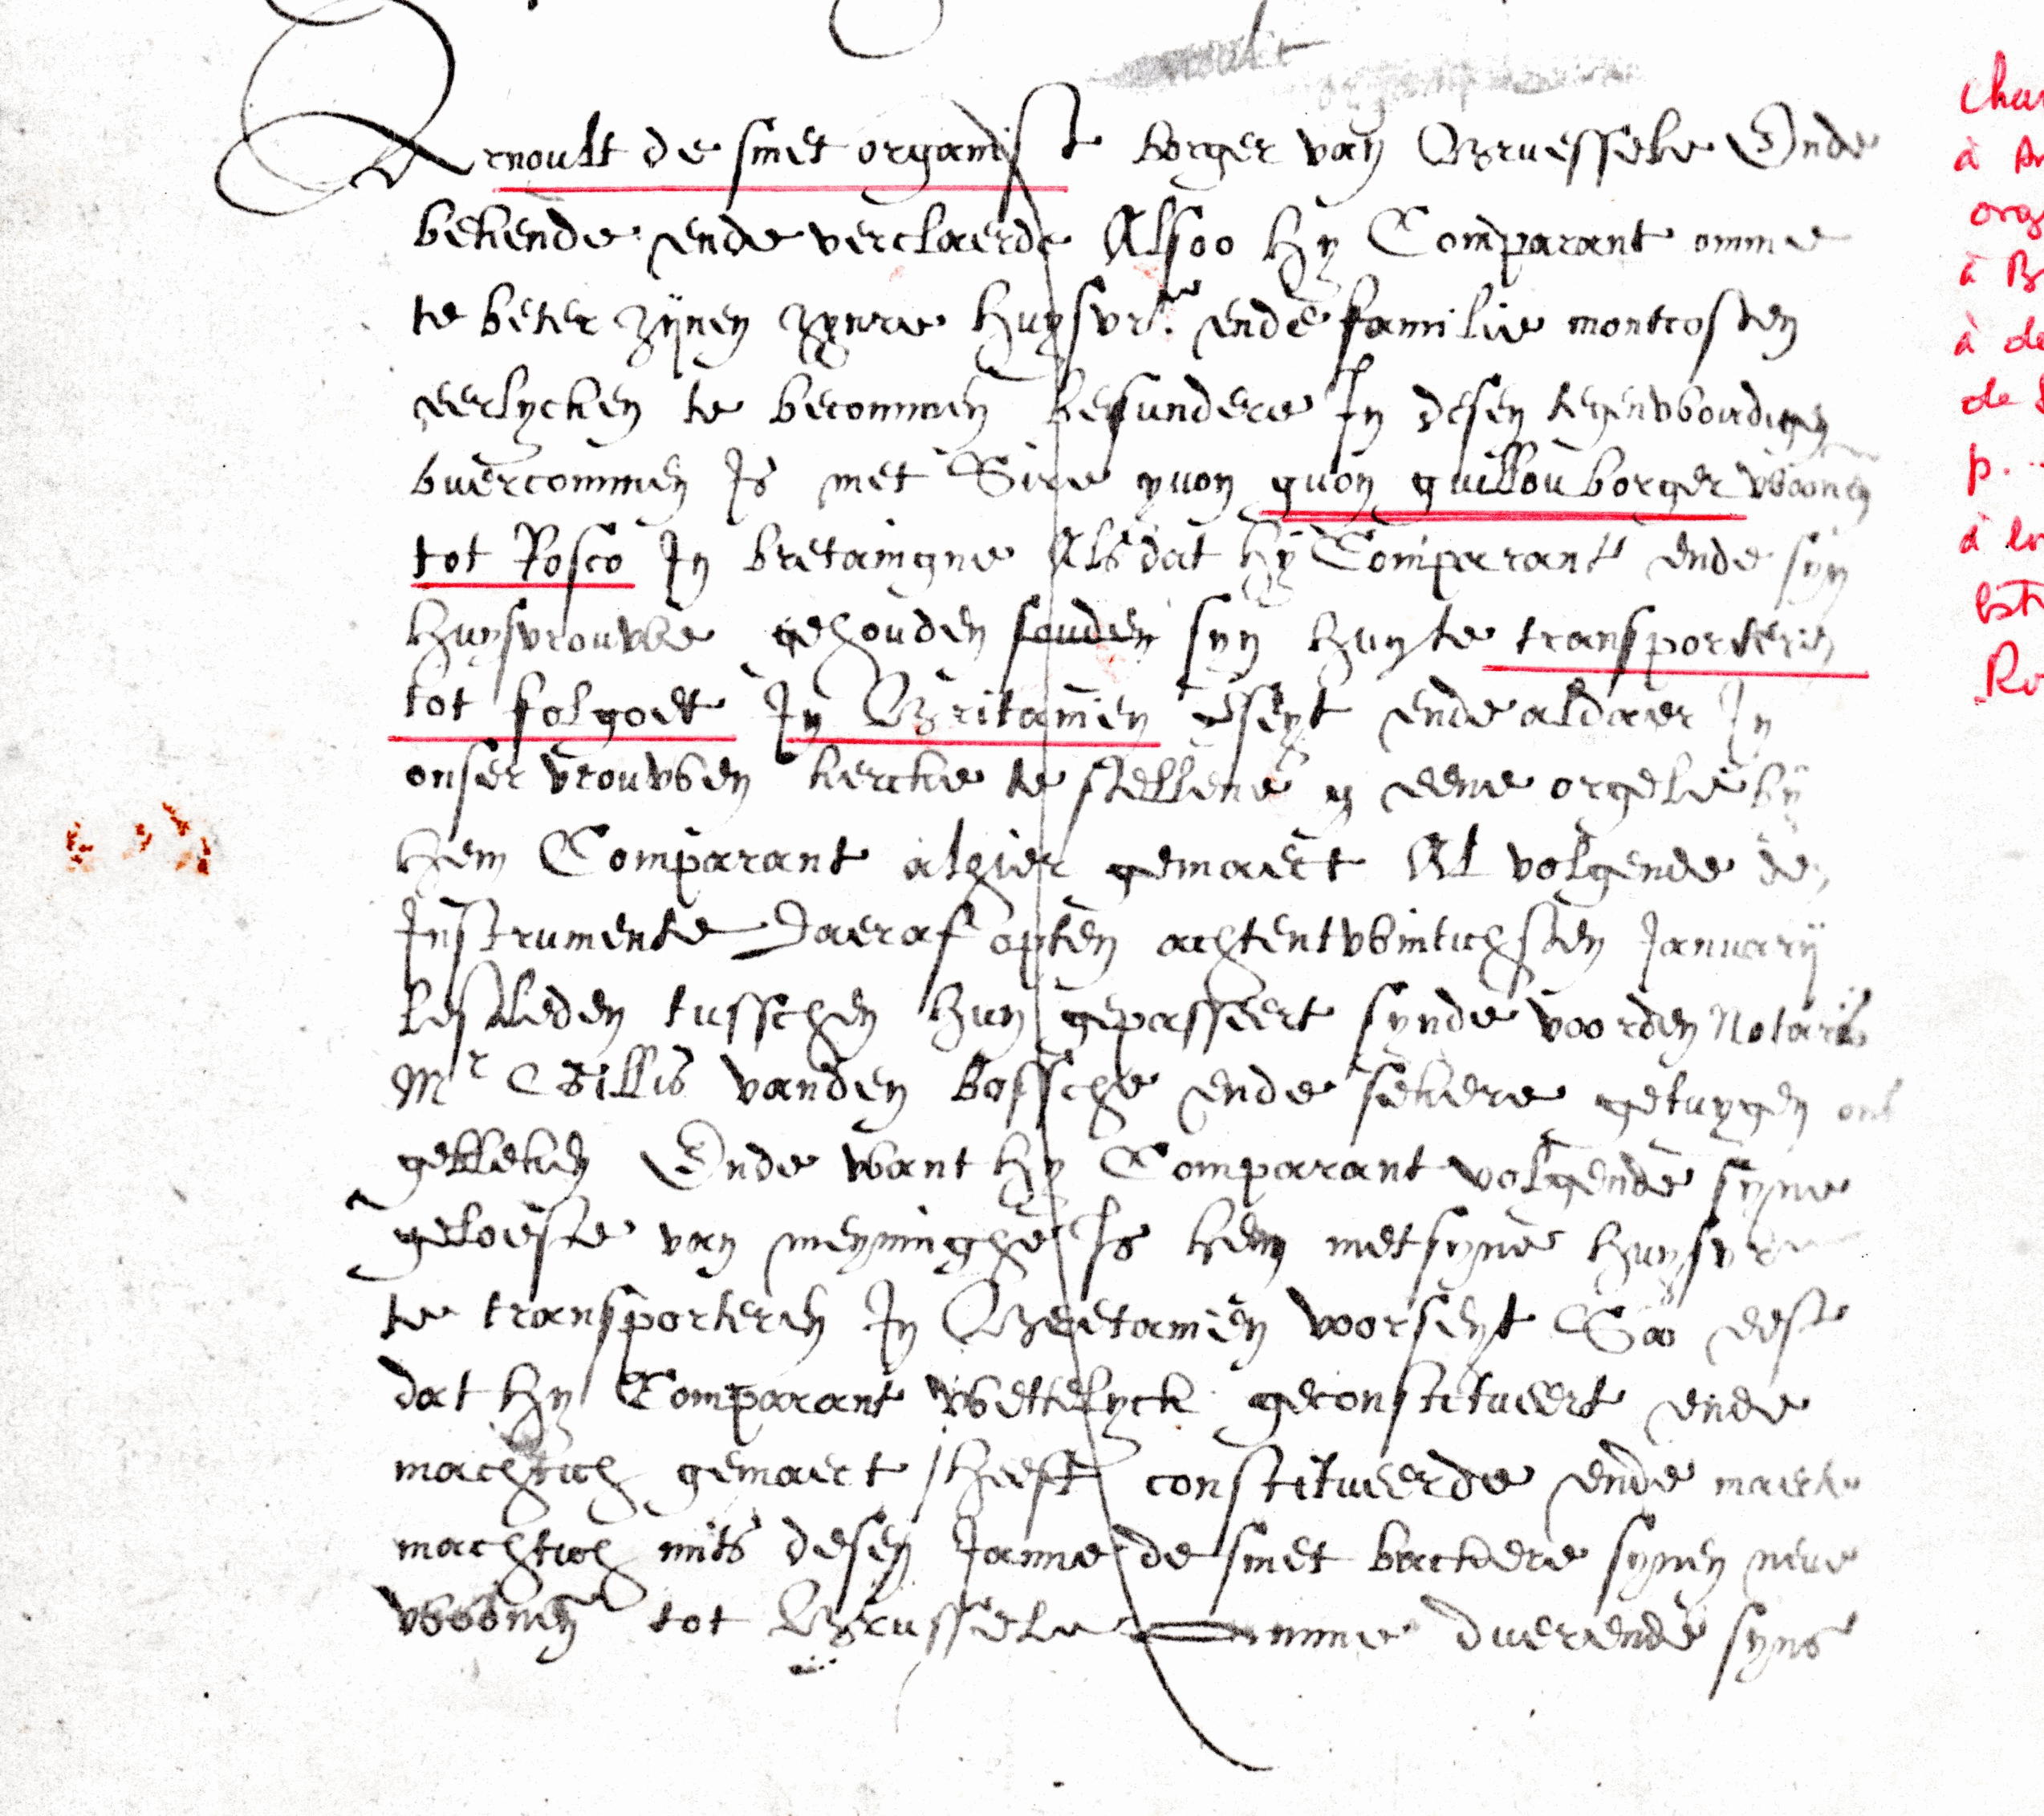 Arnoult de smet organist borger van Bruessele Ende
bekende ende verclaerde Alsoo hy Comparant omme
te beter zijnen zynre huysvr. ende familie montcosten
eerlycken te becommen besundere In desen tegenwoordigen
overcommen Is met Sire yvon guillou borger woonen
tot Rosco In bretaingne Als dat hy Comparant ende syn
huysvrouwe gehouden souden syn hun te transporteren
tot folgoet In Britanien ende aldaer In
onser vrouwen kercke te stellene eene orgele by
hem Comparant alhier gemaect Al volgende de
Instrumente daeraf opten achtentwintichsten January
lestleden tusschen hun gepasseert synde voorden Notaris
Mr Gillis vanden bossche ende sekere getuygen
Ende want hy Comparant volgende syne
geloefte van meyninghe Is hem met syne huysvr
te transporteren In Bretanien voorseyt Soo eest
dat hy Comparant wettelyck geconstitueert ende
machtich gemaect heeft constitueerde ende maect
machtich mits desen Janne de smet backere synen neve
woonen tot Brussele omme duerende syns
cha
à
org
à
à de
de
p.
à
Ro